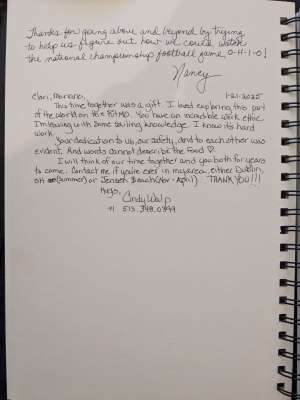 Thanks for going above and beyond by trying
to help us figure out how we could watch
the national championship football game O-H-I-O!
Nancy
1-21-2025
Clari, Mariano,
This time together was a gift. I loved exploring this part
of the world on the POTMO. You have an incredible work ethic.
I'm leaving with some sailing knowledge. I know its hard
work.
Your dedication to us, our safety, and to each other was
evident. And words cannot describe the food ♡
I will think of our time together and you both for years
to come. Contact me if you're ever in my area, either Dublin,
OH (summer) or Jensen Beach (Nov-April). THANK YOU!!!
Hugs,
Cindy Walp
+1 513.348.0499